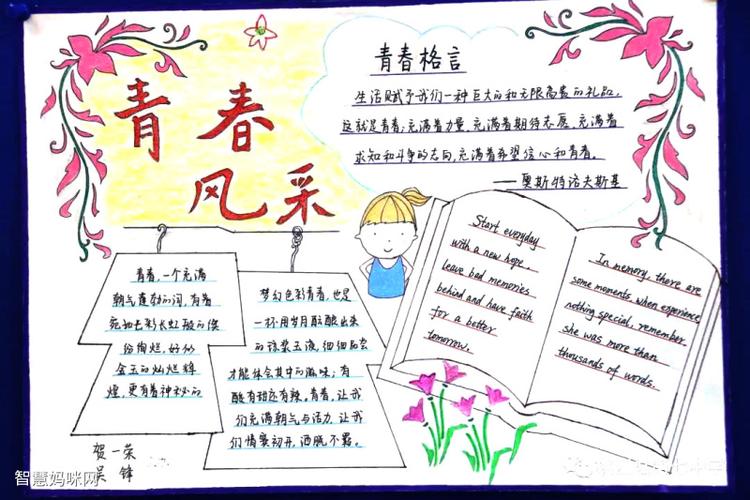 青春
风采
青春格言
生活赋予我们一种巨大的和无限高贵的礼品,
这就是青春:充满着力量,充满着期待志愿,充满着
求知和斗争的志向,充满着希望信心和青春。
——奥斯特洛夫斯基
青春,一个充满
朝气蓬勃的词,有着
宛如七彩长虹般的缤
纷绚烂,好似
金玉的灿烂辉
煌,更有着神秘的
梦幻色彩青春,也是
一杯用岁月酝酿出来
的琼浆玉液,细细品尝
才能体会其中的滋味;有
酸有甜还有辣。青春,让我
们充满朝气与活力,让我
们情窦初开,洒脱不羁。
Start everyday
with a new hope,
leave bad memories
behind and have faith
for a better
tomorrow.
In memory, there are
some moments, when experience
nothing special, remember
she was more than
thousands of words.
贺一荣
吴锋
智慧妈咪网